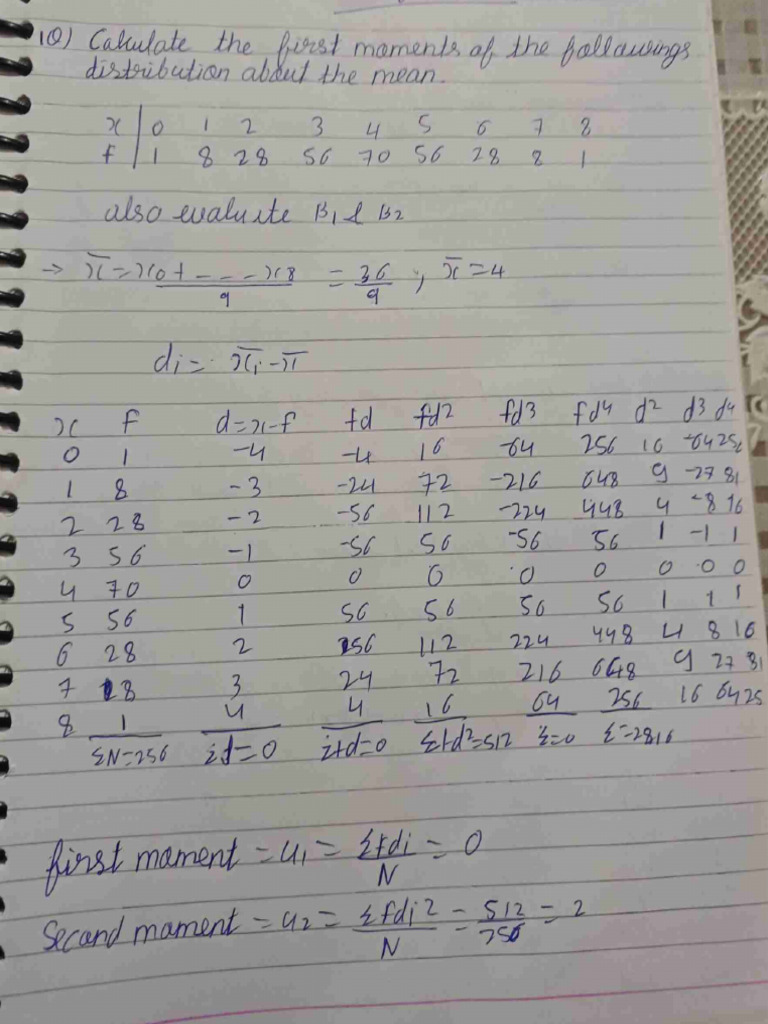 10) Calculate the first moments of the followings
distribution about the mean.
x | 0 1 2 3 4 5 6 7 8
f | 1 8 28 56 70 56 28 8 1
also evaluate B1 & B2
→ x̄ = x0 + - - - x8 / 9 = 36 / 9 ; x̄ = 4
di = x̄i - x̄
x f d=x-f fd fd2 fd3 fd4 d2 d3 d4
0 1 -4 -4 16 -64 256 16 -64 256
1 8 -3 -24 72 -216 648 9 -27 81
2 28 -2 -56 112 -224 448 4 -8 16
3 56 -1 -56 56 -56 56 1 -1 1
4 70 0 0 0 0 0 0 0 0
5 56 1 56 56 56 56 1 1 1
6 28 2 56 112 224 448 4 8 16
7 8 3 24 72 216 648 9 27 81
8 1 4 4 16 64 256 16 64 25
ΣN=256 Σd=0 Σfd=0 Σfd²=512 Σ=0 Σ=2816
first moment = u1 = Σfdi / N = 0
Second moment = u2 = Σfdi² / N = 512 / 256 = 2